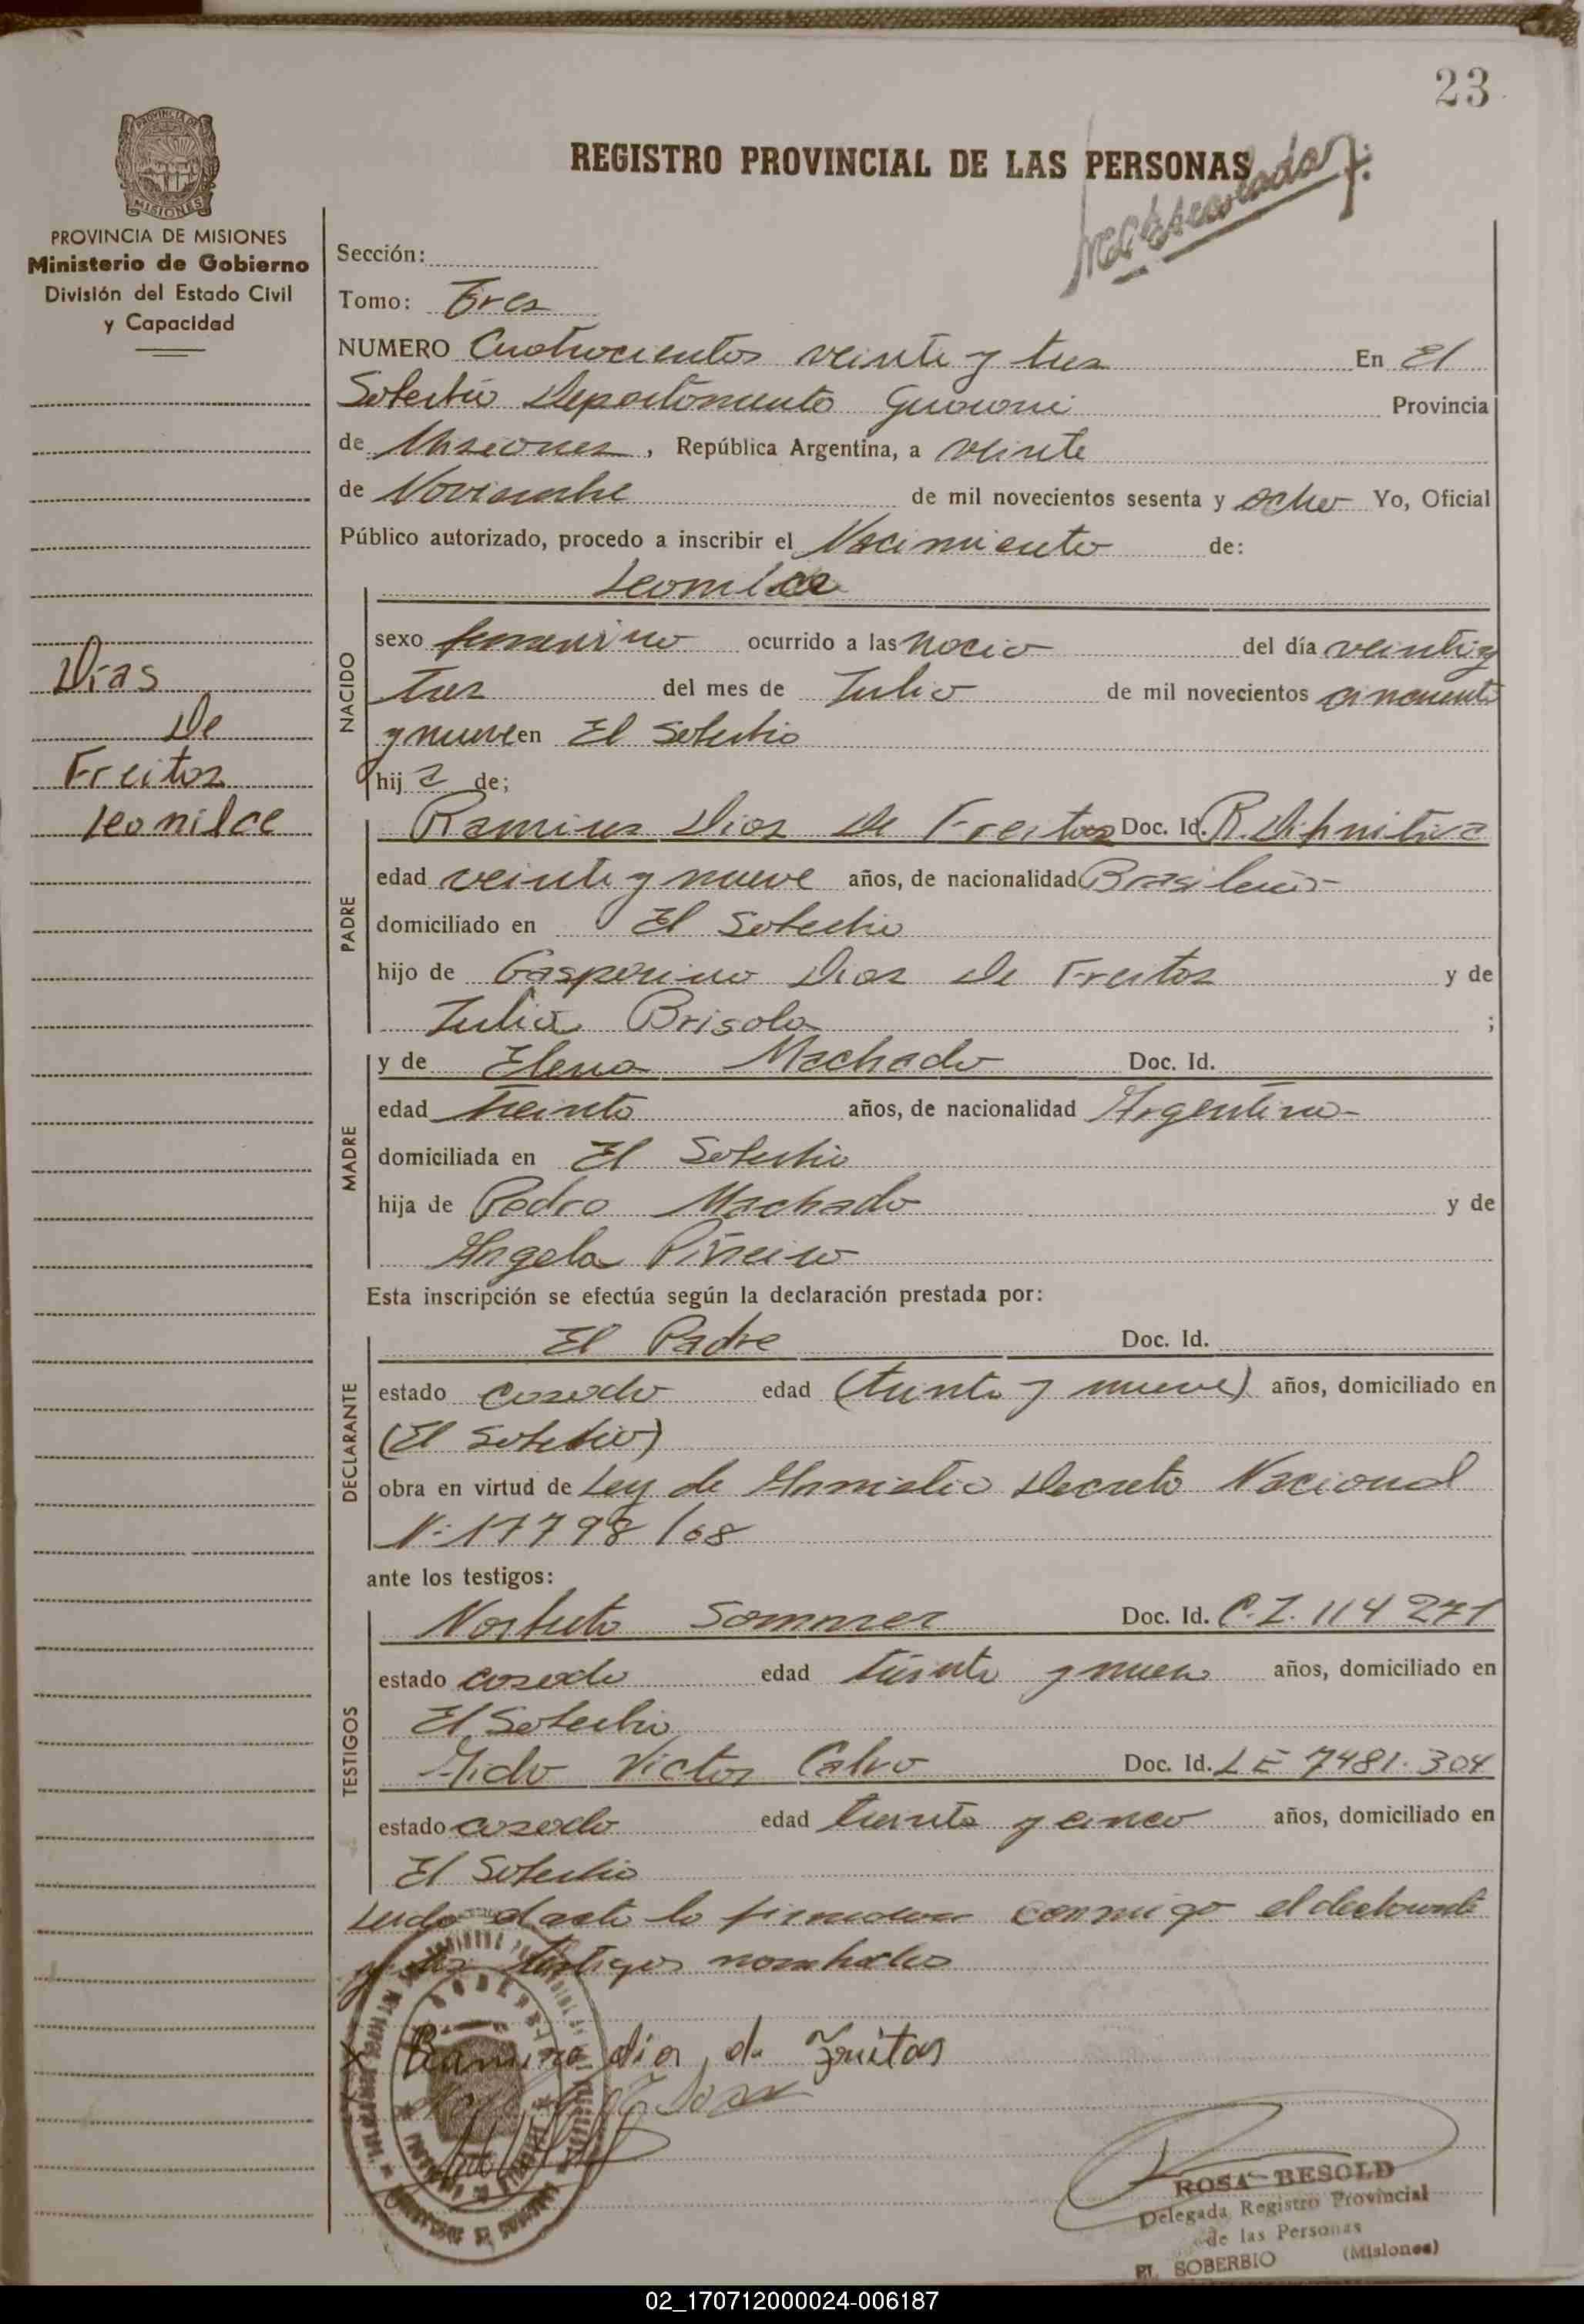 23
REGISTRO PROVINCIAL DE LAS PERSONAS
PROVINCIA DE MISIONES
Ministerio de Gobierno
División del Estado Civil
y Capacidad
Sección:
Tomo: Tres
NUMERO Cuatrocientos veinte y tres En El
Soberbio Departamento Guarani Provincia
de Misiones, República Argentina, a veinte
de Noviembre de mil novecientos sesenta y ocho Yo, Oficial
Público autorizado, procedo a inscribir el Nacimiento de:
Leonilce
NACIDO
sexo femenino ocurrido a las del día veinti y
tres del mes de Julio de mil novecientos cincuenta
y nueve en El Soberbio
hija de;
Dias
De
Freitas
Leonilce
PADRE
Ramires Dias De Freitas Doc. Id. R. Difinitiva
edad veinte y nueve años, de nacionalidad Brasileño
domiciliado en El Soberbio
hijo de Gasperino Dias De Freitas y de
Julia Brisola ;
MADRE
y de Elena Machado Doc. Id.
edad treinta años, de nacionalidad Argentina
domiciliada en El Soberbio
hija de Pedro Machado y de
Angela Piñeiro
Esta inscripción se efectúa según la declaración prestada por:
DECLARANTE
El Padre Doc. Id.
estado casado edad (treinta y nueve) años, domiciliado en
(El Soberbio)
obra en virtud de Ley de Amnistia Decreto Nacional
N: 17798/68
ante los testigos:
TESTIGOS
Norberto Sommer Doc. Id. C.I. 114 271
estado casado edad treinta y nueve años, domiciliado en
El Soberbio
Victor Calvo Doc. Id. LE 7481.304
estado casado edad treinta y cinco años, domiciliado en
El Soberbio
Leida el acta la firmaron conmigo el declarante
y los testigos nombrados
Ramires dias de Freitas
ROSA BESOLD
Delegada Registro Provincial
de las Personas
EL SOBERBIO (Misiones)
02_170712000024-006187